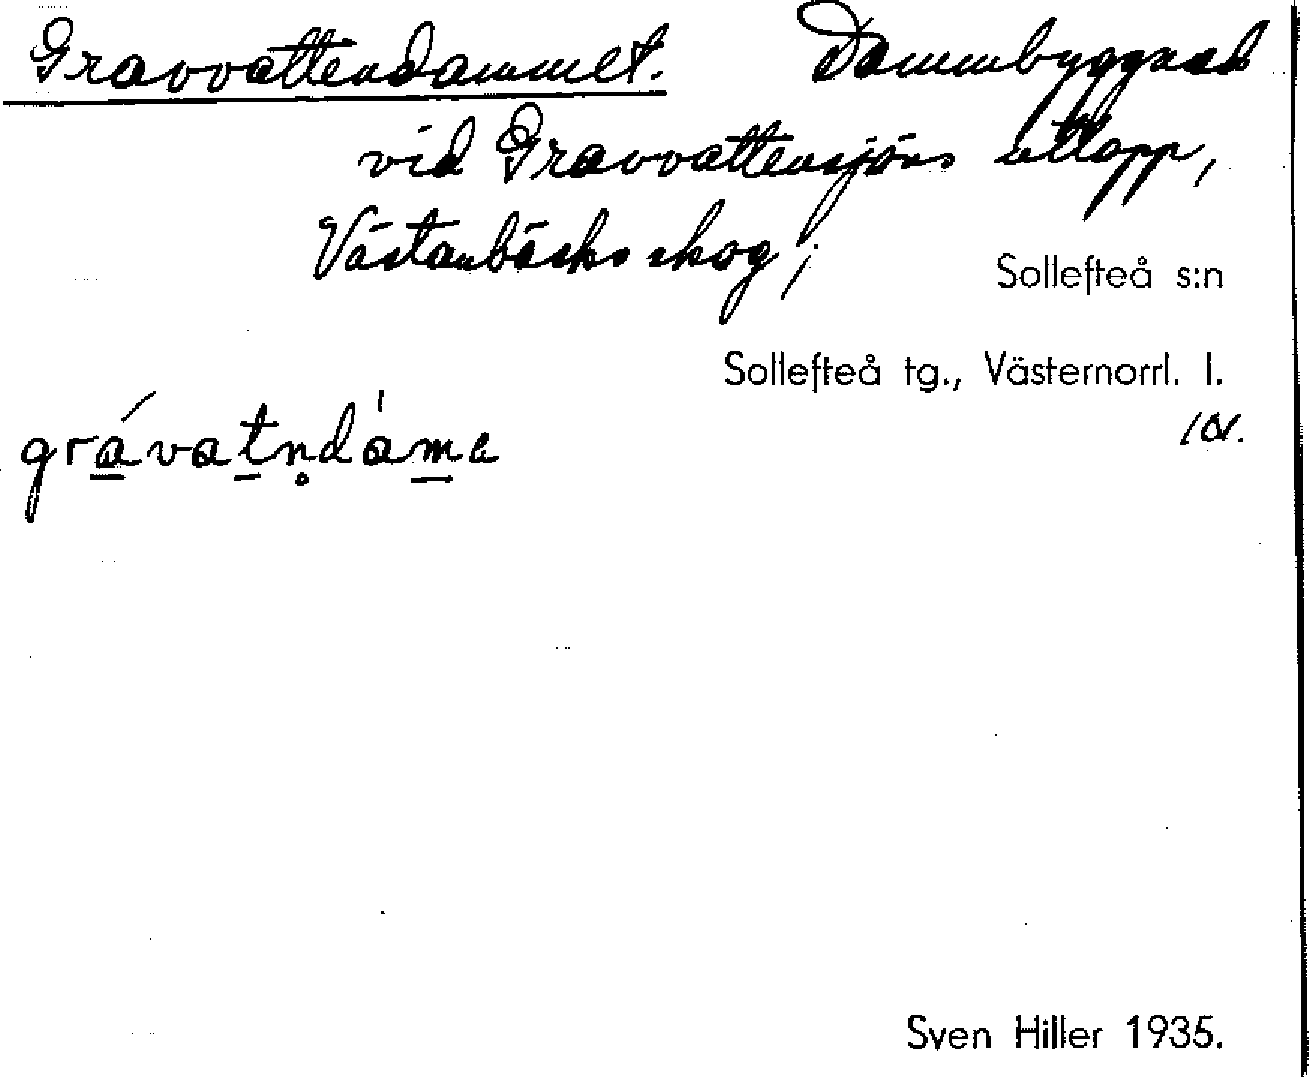 Gravvattendammet. Dammbyggnad
vid Gravvattensjöns utlopp,
Västanbäcks skog;
Sollefteå s:n
Sollefteå tg., Västernorrl. l.
101.
grávatn̥dàme
Sven Hiller 1935.